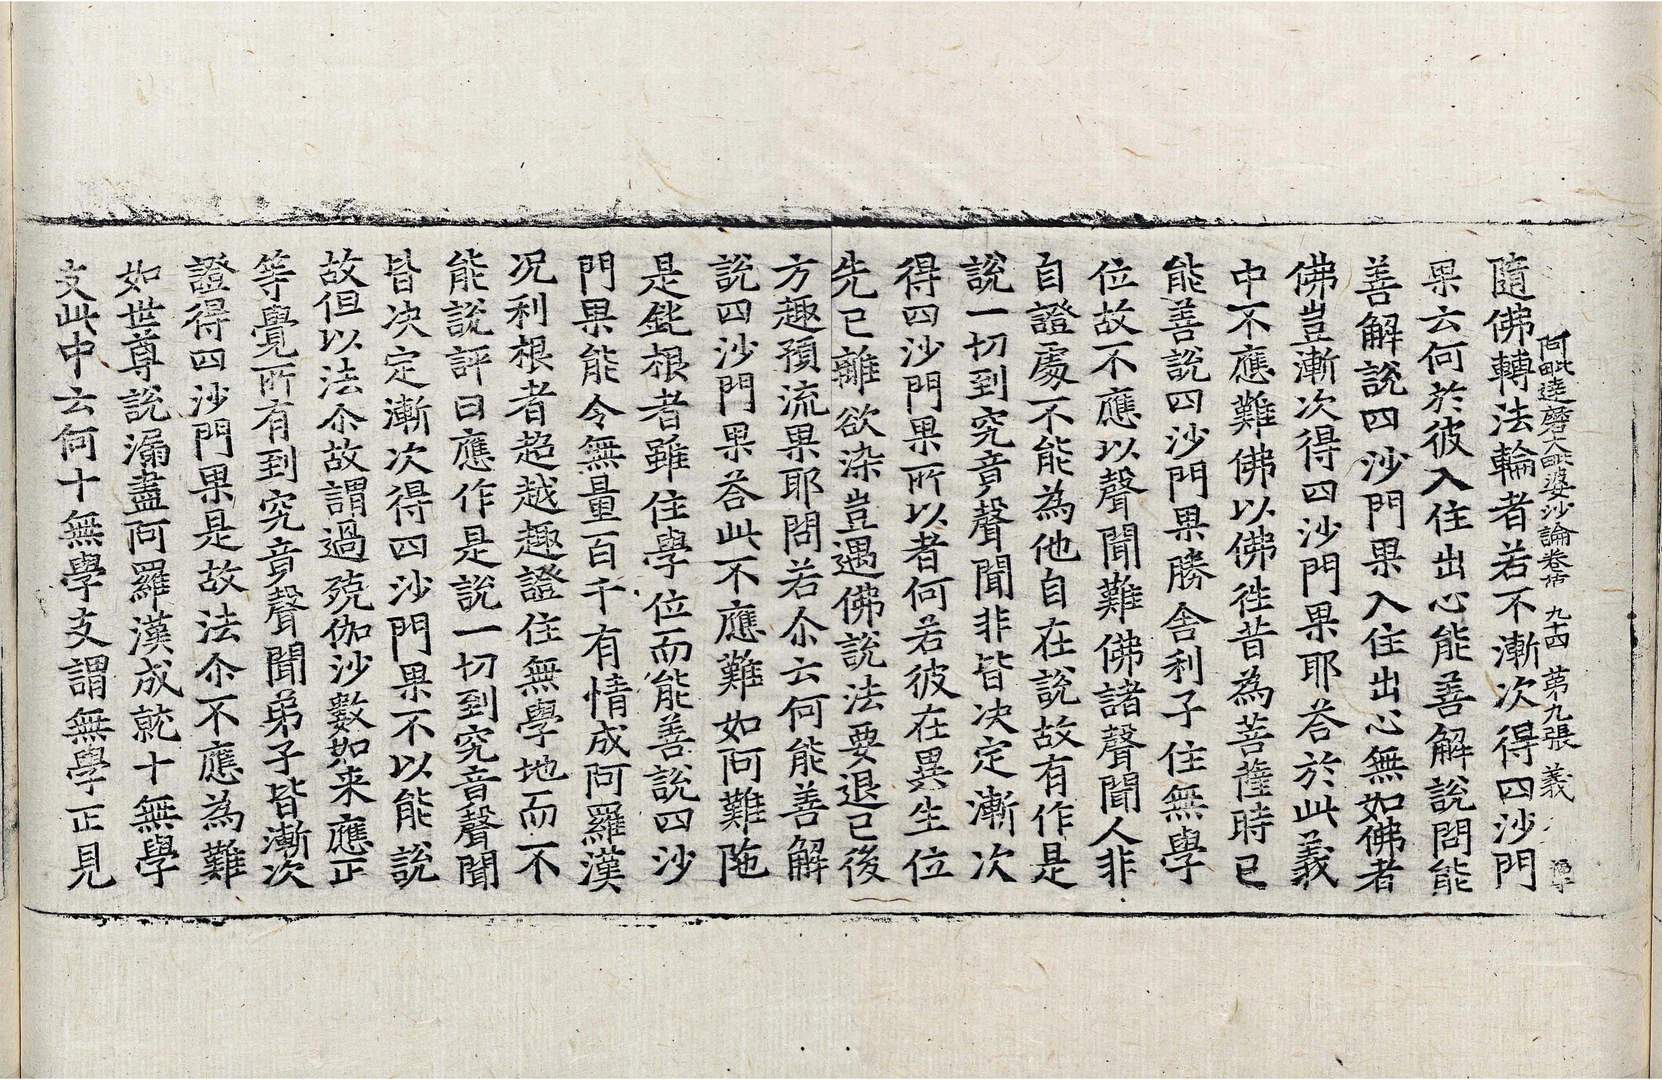 阿毗達磨大毗婆沙論卷第九十四 第九張 義
隨佛轉法輪者若不漸次得四沙門
果云何於彼入住出心能善解說問能
善解說四沙門果入住出心無如佛者
佛豈漸次得四沙門果耶荅於此義
中不應難佛以佛徃昔為菩薩時已
能善說四沙門果勝舍利子住無學
位故不應以聲聞難佛諸聲聞人非
自證處不能為他自在說故有作是
說一切到究竟聲聞非皆決定漸次
得四沙門果所以者何若彼在異生位
先已離欲染豈遇佛說法要退已後
方趣預流果耶問若尒云何能善解
說四沙門果荅此不應難如阿難陁
是鈍根者雖住學位而能善說四沙
門果能令無量百千有情成阿羅漢
况利根者超越趣證住無學地而不
能說評曰應作是說一切到究竟聲聞
皆决定漸次得四沙門果不以能說
故但以法尒故謂過殑伽沙數如来應正
等覺所有到究竟聲聞弟子皆漸次
證得四沙門果是故法尒不應為難
如世尊說漏盡阿羅漢成就十無學
支此中云何十無學支謂無學正見